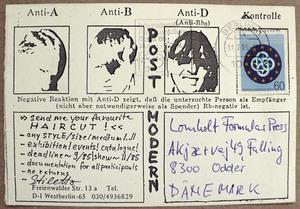 Anti-A Anti-B Anti-D Kontrolle
(Anti-Rho)
POST MODERN
60
Negative Reaktion mit Anti-D zeigt, daß die untersuchte Person als Empfänger
(nicht aber notwendigerweise als Spender) Rh-negativ ist.
>> send me your favourite
HAIRCUT! <<
- any STYLE/size/medium!..!!
- exhibition! events! catalogue!
- deadline ~ 9/85 show ~ 11/85
- documentation for all participants
- no returns
Stiletto
Freienwalder Str. 13 a Tel.
D-1 Westberlin-65 030/4936829
Formular Press
8300 Odder
DÄNEMARK